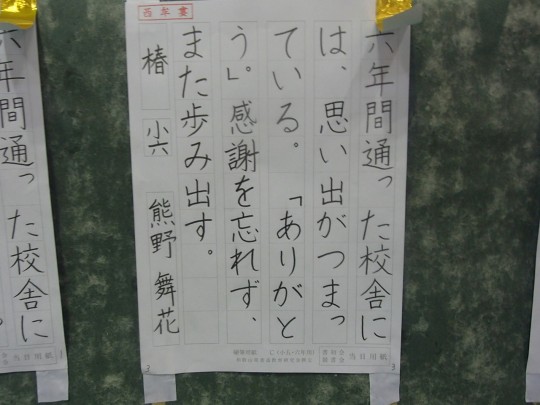 六年間通った校舎に
は、思い出がつまっ
ている。「ありがと
う」。感謝を忘れず、
また歩み出す。
椿 小六 熊野舞花
六年間通った校舎に
当日用紙
当日用紙